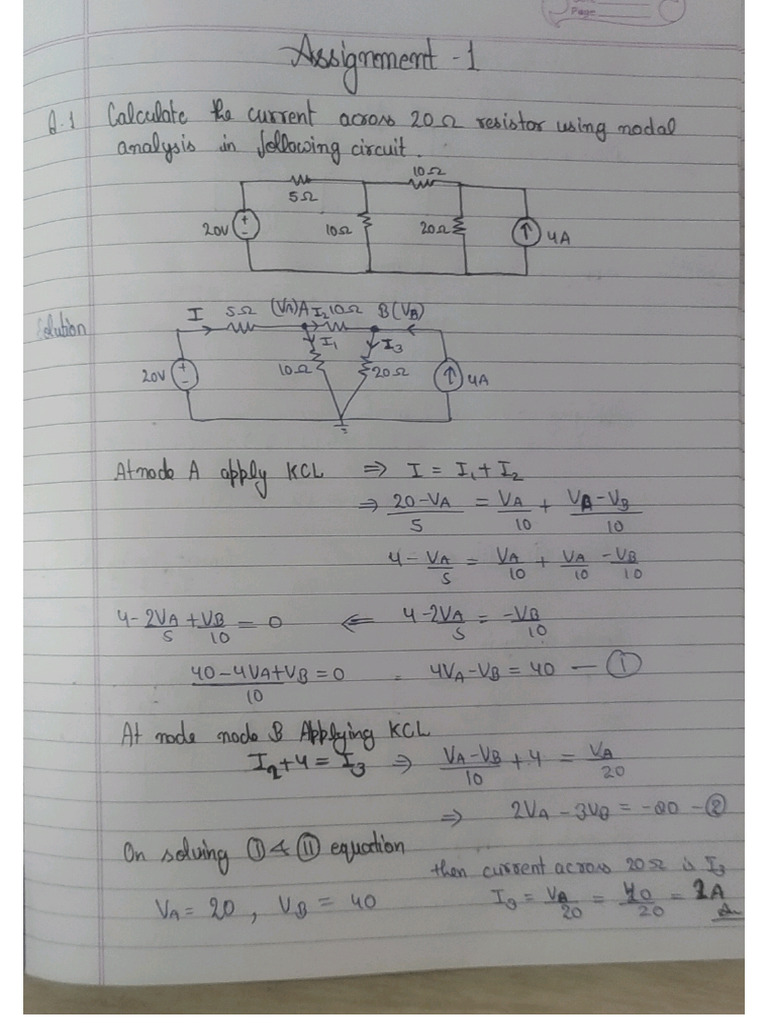 Page
Assignment - 1
Q.1 Calculate the current across 20Ω resistor using nodal
analysis in following circuit.
10Ω
5Ω
20V 10Ω 20Ω 4A
Solution I 5Ω (VA)A I2 10Ω B(VB)
I1 I3
20V 10Ω 20Ω 4A
At node A apply KCL ⇒ I = I1 + I2
⇒ (20-VA)/5 = VA/10 + (VA-VB)/10
4 - VA/5 = VA/10 + VA/10 - VB/10
4 - 2VA/5 + VB/10 = 0 ⇐ 4 - 2VA/5 = -VB/10
(40-4VA+VB)/10 = 0 4VA - VB = 40 — ①
At node node B Applying KCL
I2 + 4 = I3 ⇒ (VA-VB)/10 + 4 = VA/20
⇒ 2VA - 3VB = -80 - ②
On solving Ⓘ & Ⓘⓘ equation
then current across 20Ω is I3
VA = 20, VB = 40 I3 = VA/20 = 40/20 = 2A